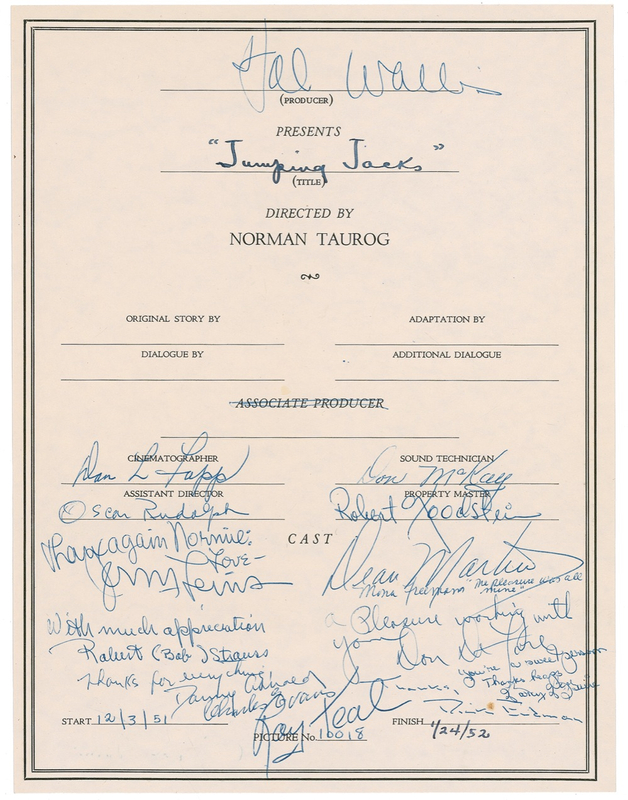 Hal Wallis
(PRODUCER)
PRESENTS
"Jumping Jacks"
(TITLE)
DIRECTED BY
NORMAN TAUROG
ORIGINAL STORY BY
ADAPTATION BY
DIALOGUE BY
ADDITIONAL DIALOGUE
ASSOCIATE PRODUCER
CINEMATOGRAPHER
SOUND TECHNICIAN
Don McKay
ASSISTANT DIRECTOR
PROPERTY MASTER
Oscar Rudolph
Robert Goodstein
CAST
Thanx again Normie:
Love-
Dean Martin
Mona Freeman "The pleasure was all
mine"
With much appreciation
Robert (Bob) Strauss
a Pleasure working with
you
Don DeFore
Thanks for everything
Danny Arnold
Charles Evans
you're a sweet person
Thanks heaps
Ray Teal
START 12/3/51
FINISH 1/24/52
PICTURE No. 10018